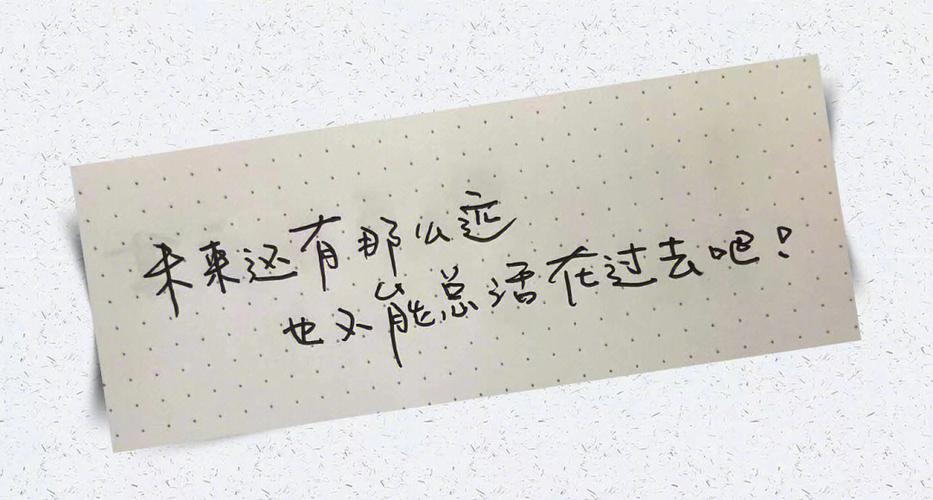 未来还有那么远
也不能总活在过去吧!